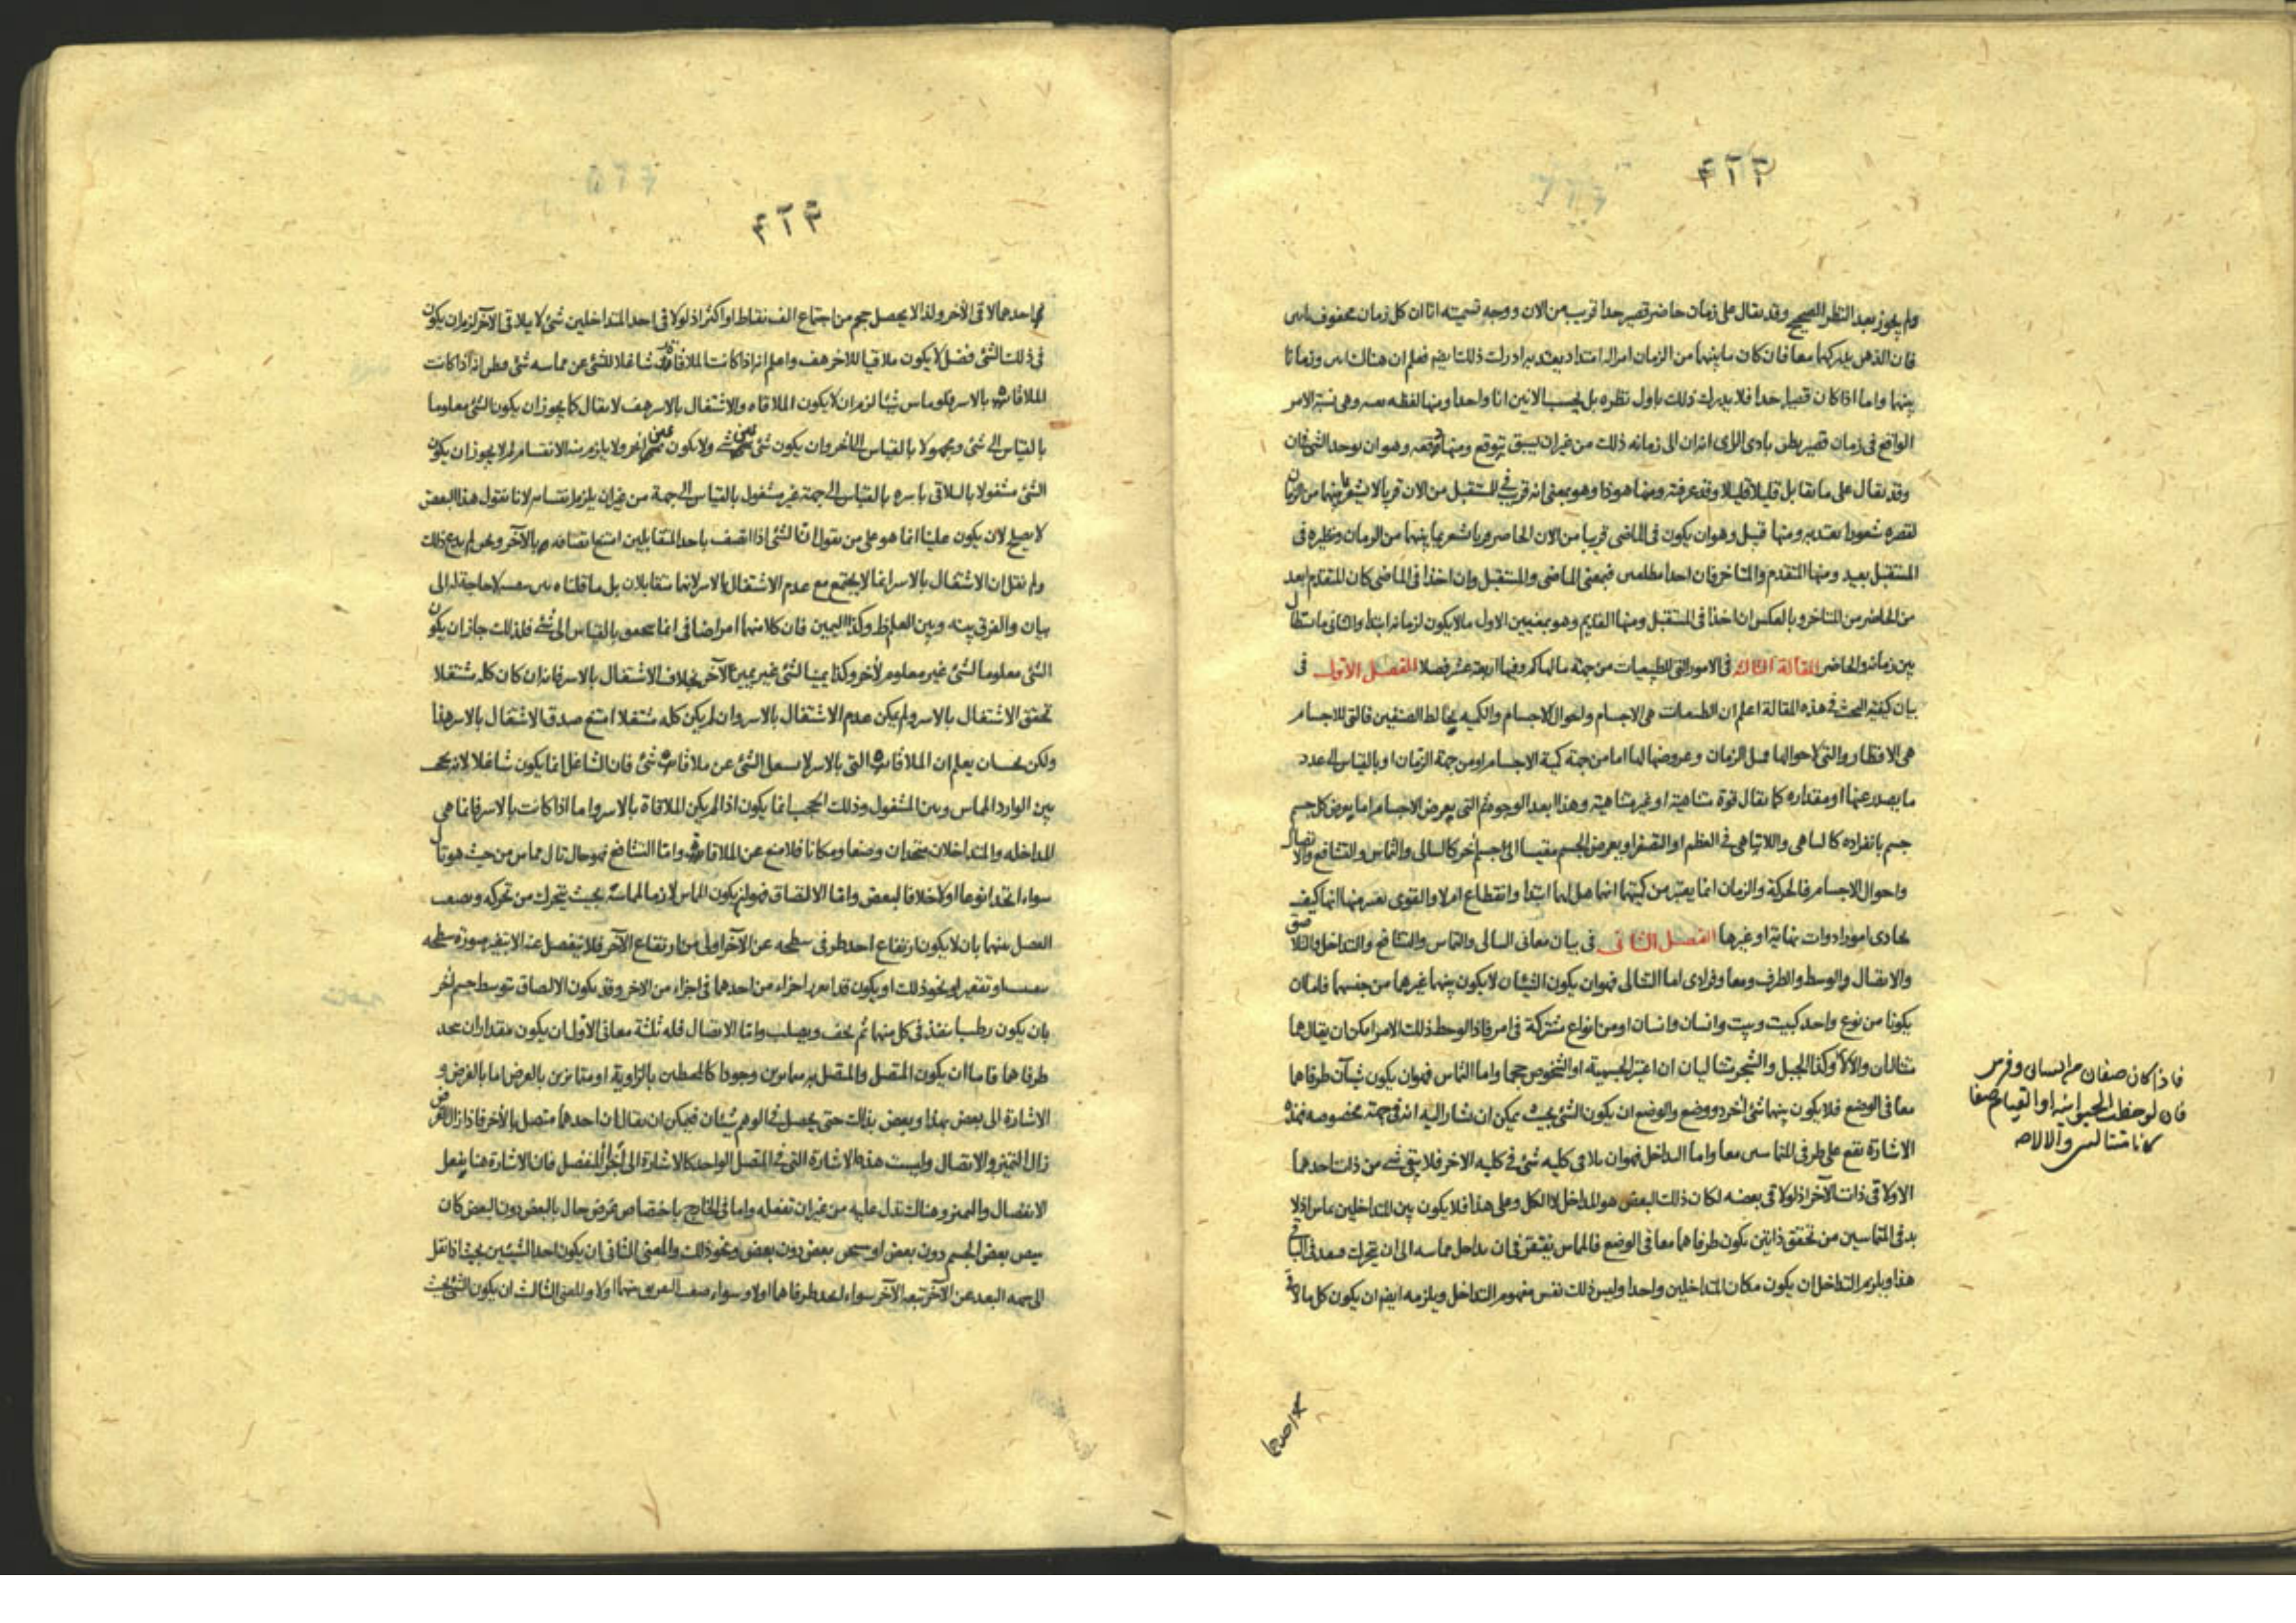 ولم يجوز بعد النظر الصحيح وقد يقال على زمان حاضر قصير جدا قريب من الان ووجه تسميته انا ان كل زمان محفوف
فان الذهن يدركهما معا فان كان ما بينهما من الزمان امرا له امتداد يعتد به ادرك ذلك ايضا فعلم ان هناك وزمانا
بينهما واما اذا كان قصيرا جدا فلا يدرك ذلك باول نظره بل يحسب الانين انا واحدا ومنها لفظه وهي نسبة الامر
الواقع في زمان قصير يظن بادى الراى انه ان الى زمانه ذلك من غير ان يسبق توقع ومنها وهو ان يوجد الشئ فان
وقد يقال على ما يقابل قليلا قليلا وقد عرفته ومنها هوذا وهو بمعنى انه قريب في المستقبل من الان قربا لا يشعر بما بينهما من الزمان
لقصره شعورا يعتد به ومنها قبيل وهو ان يكون في الماضى قريبا من الان الحاضر وربما شعر بما بينهما من الزمان ونظيره في
المستقبل بعيد ومنها المتقدم والمتاخر فان اخذا مطلقين فبمعنى الماضى والمستقبل وان اخذا في الماضى كان المتقدم ابعد
من الحاضر من المتاخر وبالعكس ان اخذا في المستقبل ومنها القديم وهو بمعنيين الاول ما لا يكون لزمانه ابتداء والثانى ما استطال
بين زمانه والحاضر المقالة الثالثة في الامور التى للطبيعيات من جهة ما لها كم وفيها اربعة عشر فصلا الفصل الاول في
بيان كيفية البحث في هذه المقالة اعلم ان الطبيعيات هى الاجسام واحوال الاجسام والكمية يخالط الصنفين فالتى للاجسام
هى الاقطار والتى لاحوالها مثل الزمان وعروضها لها اما من جهة كمية الاجسام او من جهة الزمان او بالقياس الى عدد
ما يصدر عنها او مقداره كما يقال قوة متناهية او غير متناهية وهذا البعد الوجوه ثم التى يعرض الاجسام اما يعرض كل جسم
جسم بانفراده كالتناهى واللاتناهى في العظم او الصغر او يعرض لجسم مقيسا الى جسم اخر كالتتالى والتماس والتشافع والاتصال
واحوال الاجسام فالحركة والزمان انما يعتبر من كميتها انها هل لها ابتداء وانقطاع ام لا والقوى يعتبر منها انها كيف
يحاذى امورا ذوات نهاية او غيرها الفصل الثانى في بيان معانى التتالى والتماس والتشافع والتداخل والتلاصق
والاتصال والوسط والطرف ومعا وفرادى اما التتالى فهو ان يكون الشيئان لا يكون بينهما غيرهما من جنسهما فاما ان
يكونا من نوع واحد كبيت وبيت وانسان وانسان او من انواع مشتركة في امر فاذا لوحظ ذلك الامر امكن ان يقال هما
متتاليان والا لا وكذا الجبل والشجر متتاليان ان اعتبر الجسمية او الشخوص حجما واما التماس فهو ان يكون شيئان طرفاهما
معا في الوضع فلا يكون بينهما شئ اخر ذو وضع والوضع ان يكون الشئ بحيث يمكن ان يشار اليه انه في جهة مخصوصة فهذه
الاشارة تقع على طرفى المتماسين معا واما التداخل فهو ان يلاقى كلية شئ في كلية الاخر فلا يبقى شئ من ذات احدهما
الا ولاقى ذات الآخر اذ لو لاقى بعضه لكان ذلك البعض هو المداخل لا الكل وعلى هذا فلا يكون بين المتداخلين تماس اذ لا
بد في المتماسين من تحقق ذاتين يكون طرفاهما معا في الوضع فالماس يفتقر في ان يداخل مماسه الى ان يتحرك
هذا ويلزم التداخل ان يكون مكان المتداخلين واحدا وليس ذلك نفس مفهوم التداخل ويلزمه ايضا ان يكون كل ما لاقى
فاذا كان صفان من انسان وفرس
فان لوحظت الحيوانية او القيام صفا
كانا متتاليين والا لا
احدهما لاقى الآخر ولذا لا يحصل حجم من اجتماع الف نقاط او اكثر اذ لو لاقى احد المتداخلين شئ لا يلاقى الآخر لزم ان يكون
في ذلك الشئ فضل لا يكون ملاقيا للاخر هف واعلم انه اذا كانت الملاقاة شاغلا للشئ عن مماسه شئ اذا كانت
الملاقاة بالاسر وماس شيئا لزم ان لا يكون الملاقاة والاشتغال بالاسر هف لا يقال كما يجوز ان يكون الشئ معلوما
بالقياس الى شئ ومجهولا بالقياس الى الاخر وان يكون شئ يمين شئ ولا يكون يمين اخر ولا يلزم منه الانقسام لم لا يجوز ان يكون
الشئ مشغولا بالملاقى باسره بالقياس الى جهة غير مشغول بالقياس الى جهة من غير ان يلزم انقسام لانا نقول هذا البعض
لا يصح لان يكون علينا انما هو على من يقول ان الشئ اذا اتصف باحد المتقابلين امتنع اتصافه بالآخر ونحن لم ندع ذلك
ولم نقل ان الاشتغال بالاسر انما لا يجتمع مع عدم الاشتغال بالاسر لانهما متقابلان بل ما قلناه لا حاجة له الى
بيان والفرق بينه وبين العلم ظ وكذا اليمين فان كلا منهما امر اضافى انما يتحقق بالقياس الى شئ فلذلك جاز ان يكون
الشئ معلوما لشئ غير معلوم لآخر وكذا يمينا لشئ غير يمين الآخر بخلاف الاشتغال بالاسر فانه ان كان كله مشتغلا
تحقق الاشتغال بالاسر ولم يكن عدم الاشتغال بالاسر وان لم يكن كله مشتغلا امتنع صدق الاشتغال بالاسر هذا
ولكن يجب ان يعلم ان الملاقاة التى بالاسر لا يشغل الشئ عن ملاقاة شئ فان الشاغل انما يكون شاغلا لانه يحجب
بين الوارد المماس وبين المشغول وذلك الحجب انما يكون اذا لم يكن الملاقاة بالاسر واما اذا كانت بالاسر فانما هى
المداخلة والمتداخلان متحدان وضعا ومكانا فلا منع عن الملاقاة واما التشافع فهو حال تال مماس من حيث هو تال
سواء اتحدا نوعا اولا خلافا لبعض واما الالتصاق فهو ان يكون المماس لازما لمماسه بحيث يتحرك من تحركه ويصعب
الفصل بينهما بان لا يكون ارتفاع احد طرفى سطحه عن الآخر اولى من ارتفاع الآخر فلا ينفصل عنه الا بتغير صورة سطحه
او تقعير او نحو ذلك او يكون قد اجزاء من احدهما في اجزاء من الاخر وقد يكون الالصاق بتوسط جسم آخر
بان يكون رطبا ينفذ في كل منهما ثم يجف ويصلب واما الاتصال فله ثلثة معانى الاول ان يكون مقداران يتحد
طرفاهما فاما ان يكون المتصل والمتصل به متمايزين وجودا كالخطين بالزاوية او متمايزين بالعرض اما بالفرض و
الاشارة الى بعض بهذا وبعض بذلك حتى يحصل في الوهم شيئان فيمكن ان يقال ان احدهما متصل بالآخر فاذا زال الفرض
زال التميز والاتصال وليست هذه الاشارة التى في المتصل الواحد كالاشارة الى اجزاء المنفصل فان الاشارة هنا يفعل
الانفصال والتميز وهناك تدل عليه من غير ان تفعله واما في الخارج باختصاص عرض حال بالبعض دون البعض كان
بعض الجسم دون بعض او بعض دون بعض ونحو ذلك والمعنى الثانى ان يكون احد الشيئين بحيث اذا نقل
الى جهة البعد عن الآخر تبعه الآخر سواء اتحد طرفاهما اولا وسواء صعب التفريق بينهما اولا والمعنى الثالث ان يكون الشئ بحيث